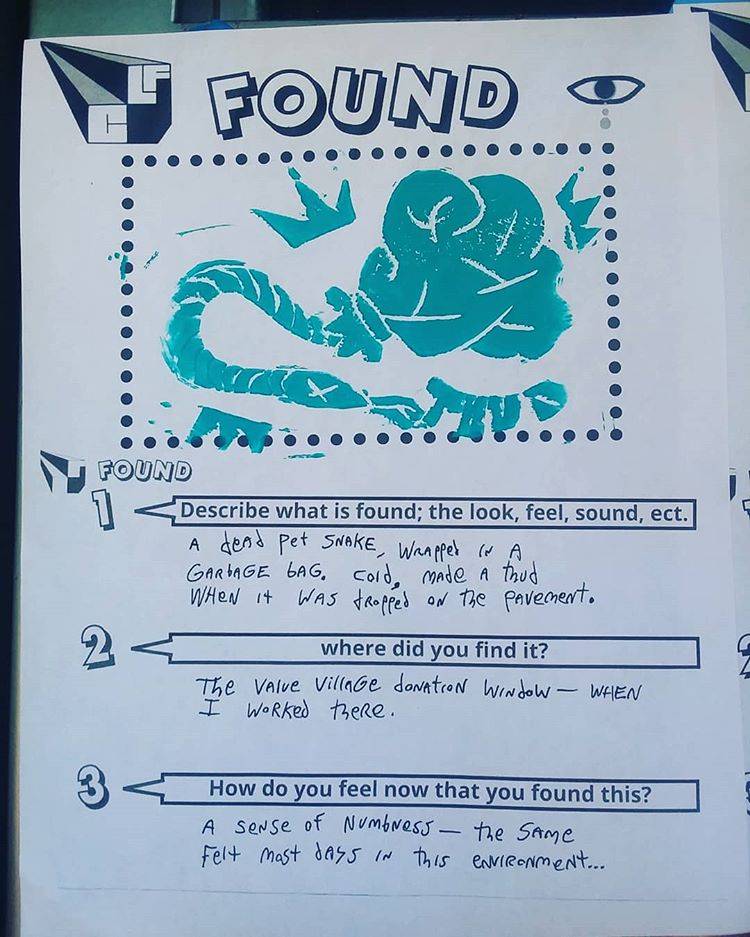 CLF
FOUND
THUD
FOUND
1
Describe what is found; the look, feel, sound, ect.
A dead pet SNAKE, WRAPPED IN A
GARBAGE BAG. COLD, MADE A thud
WHEN IT WAS dropped ON The PAVEMENT.
2
where did you find it?
The VALUE VILLAGE dONATION WINdOW — WHEN
I WORKED THERE.
3
How do you feel now that you found this?
A SENSE OF NUMBNESS — the SAME
FELT MOST DAYS IN THIS ENVIRONMENT...